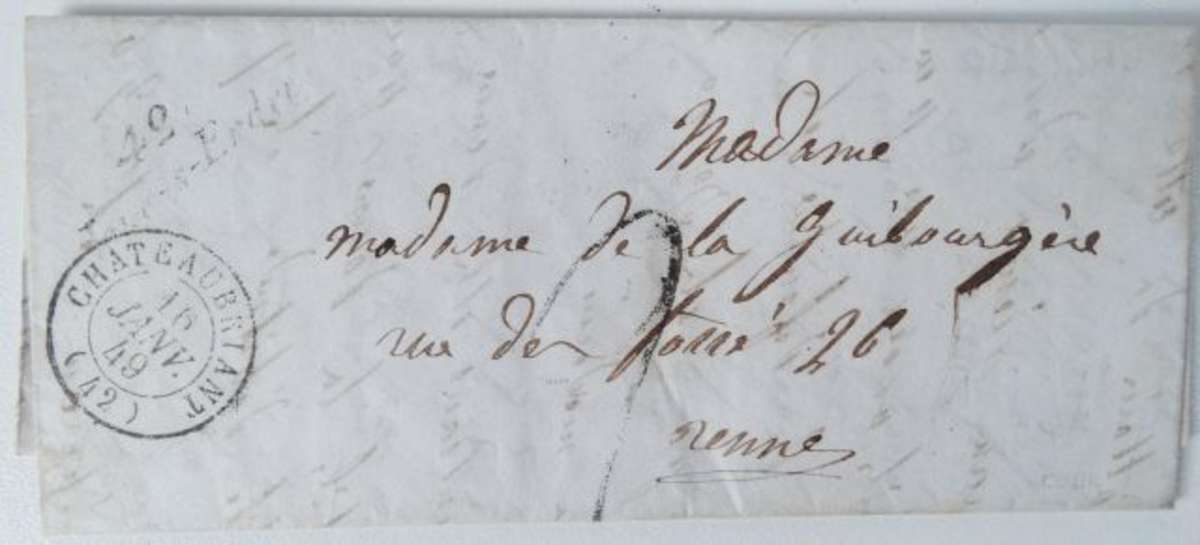 42
CHATEAUBRIANT (42)
16
JANV.
49
Madame
madame de la Guibourgère
rue des fossé 26
renne
2